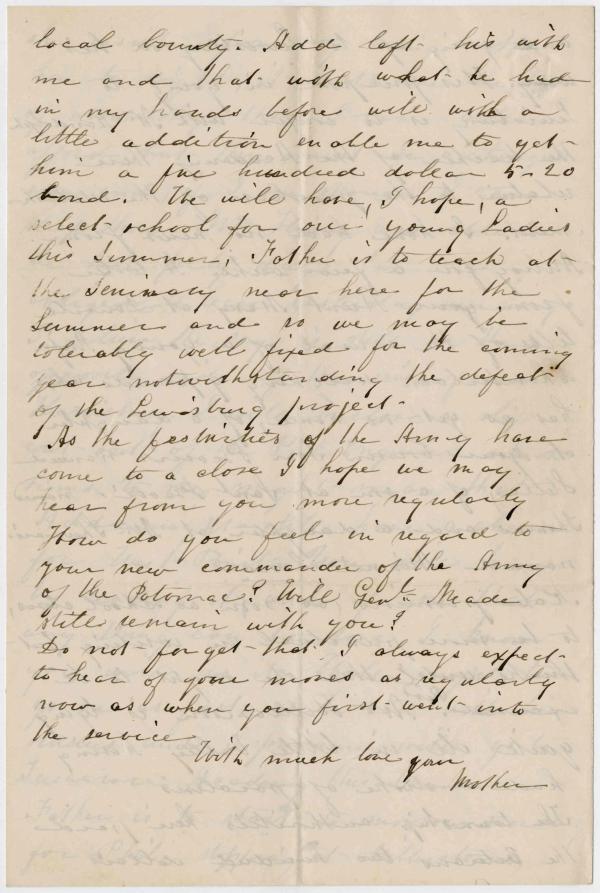 local bounty. Add left his with
me and that with what he had
in my hands before will with a
little addition enable me to get
him a five hundred dollar 5-20
bond. We will have, I hope, a
select school for our young Ladies
this Summer, Father is to teach at
the Seminary near here for the
Summer and so we may be
tolerably well fixed for the coming
year notwithstanding the defeat
of the Lewisburg project.
As the festivities of the Army have
come to a close I hope we may
hear from you more regularly
How do you feel in regard to
your new commander of the Army
of the Potomac? Will Genl. Meade
still remain with you?
Do not forget that I always expect
to hear of your moves as regularly
now as when you first went into
the service
With much love your
Mother